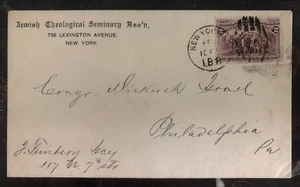 Jewish Theological Seminary Ass'n,
736 LEXINGTON AVENUE,
NEW YORK.
NEW YORK
2
Congr. Mickveh Israel
Philadelphia
Pa
117 N. 7th str